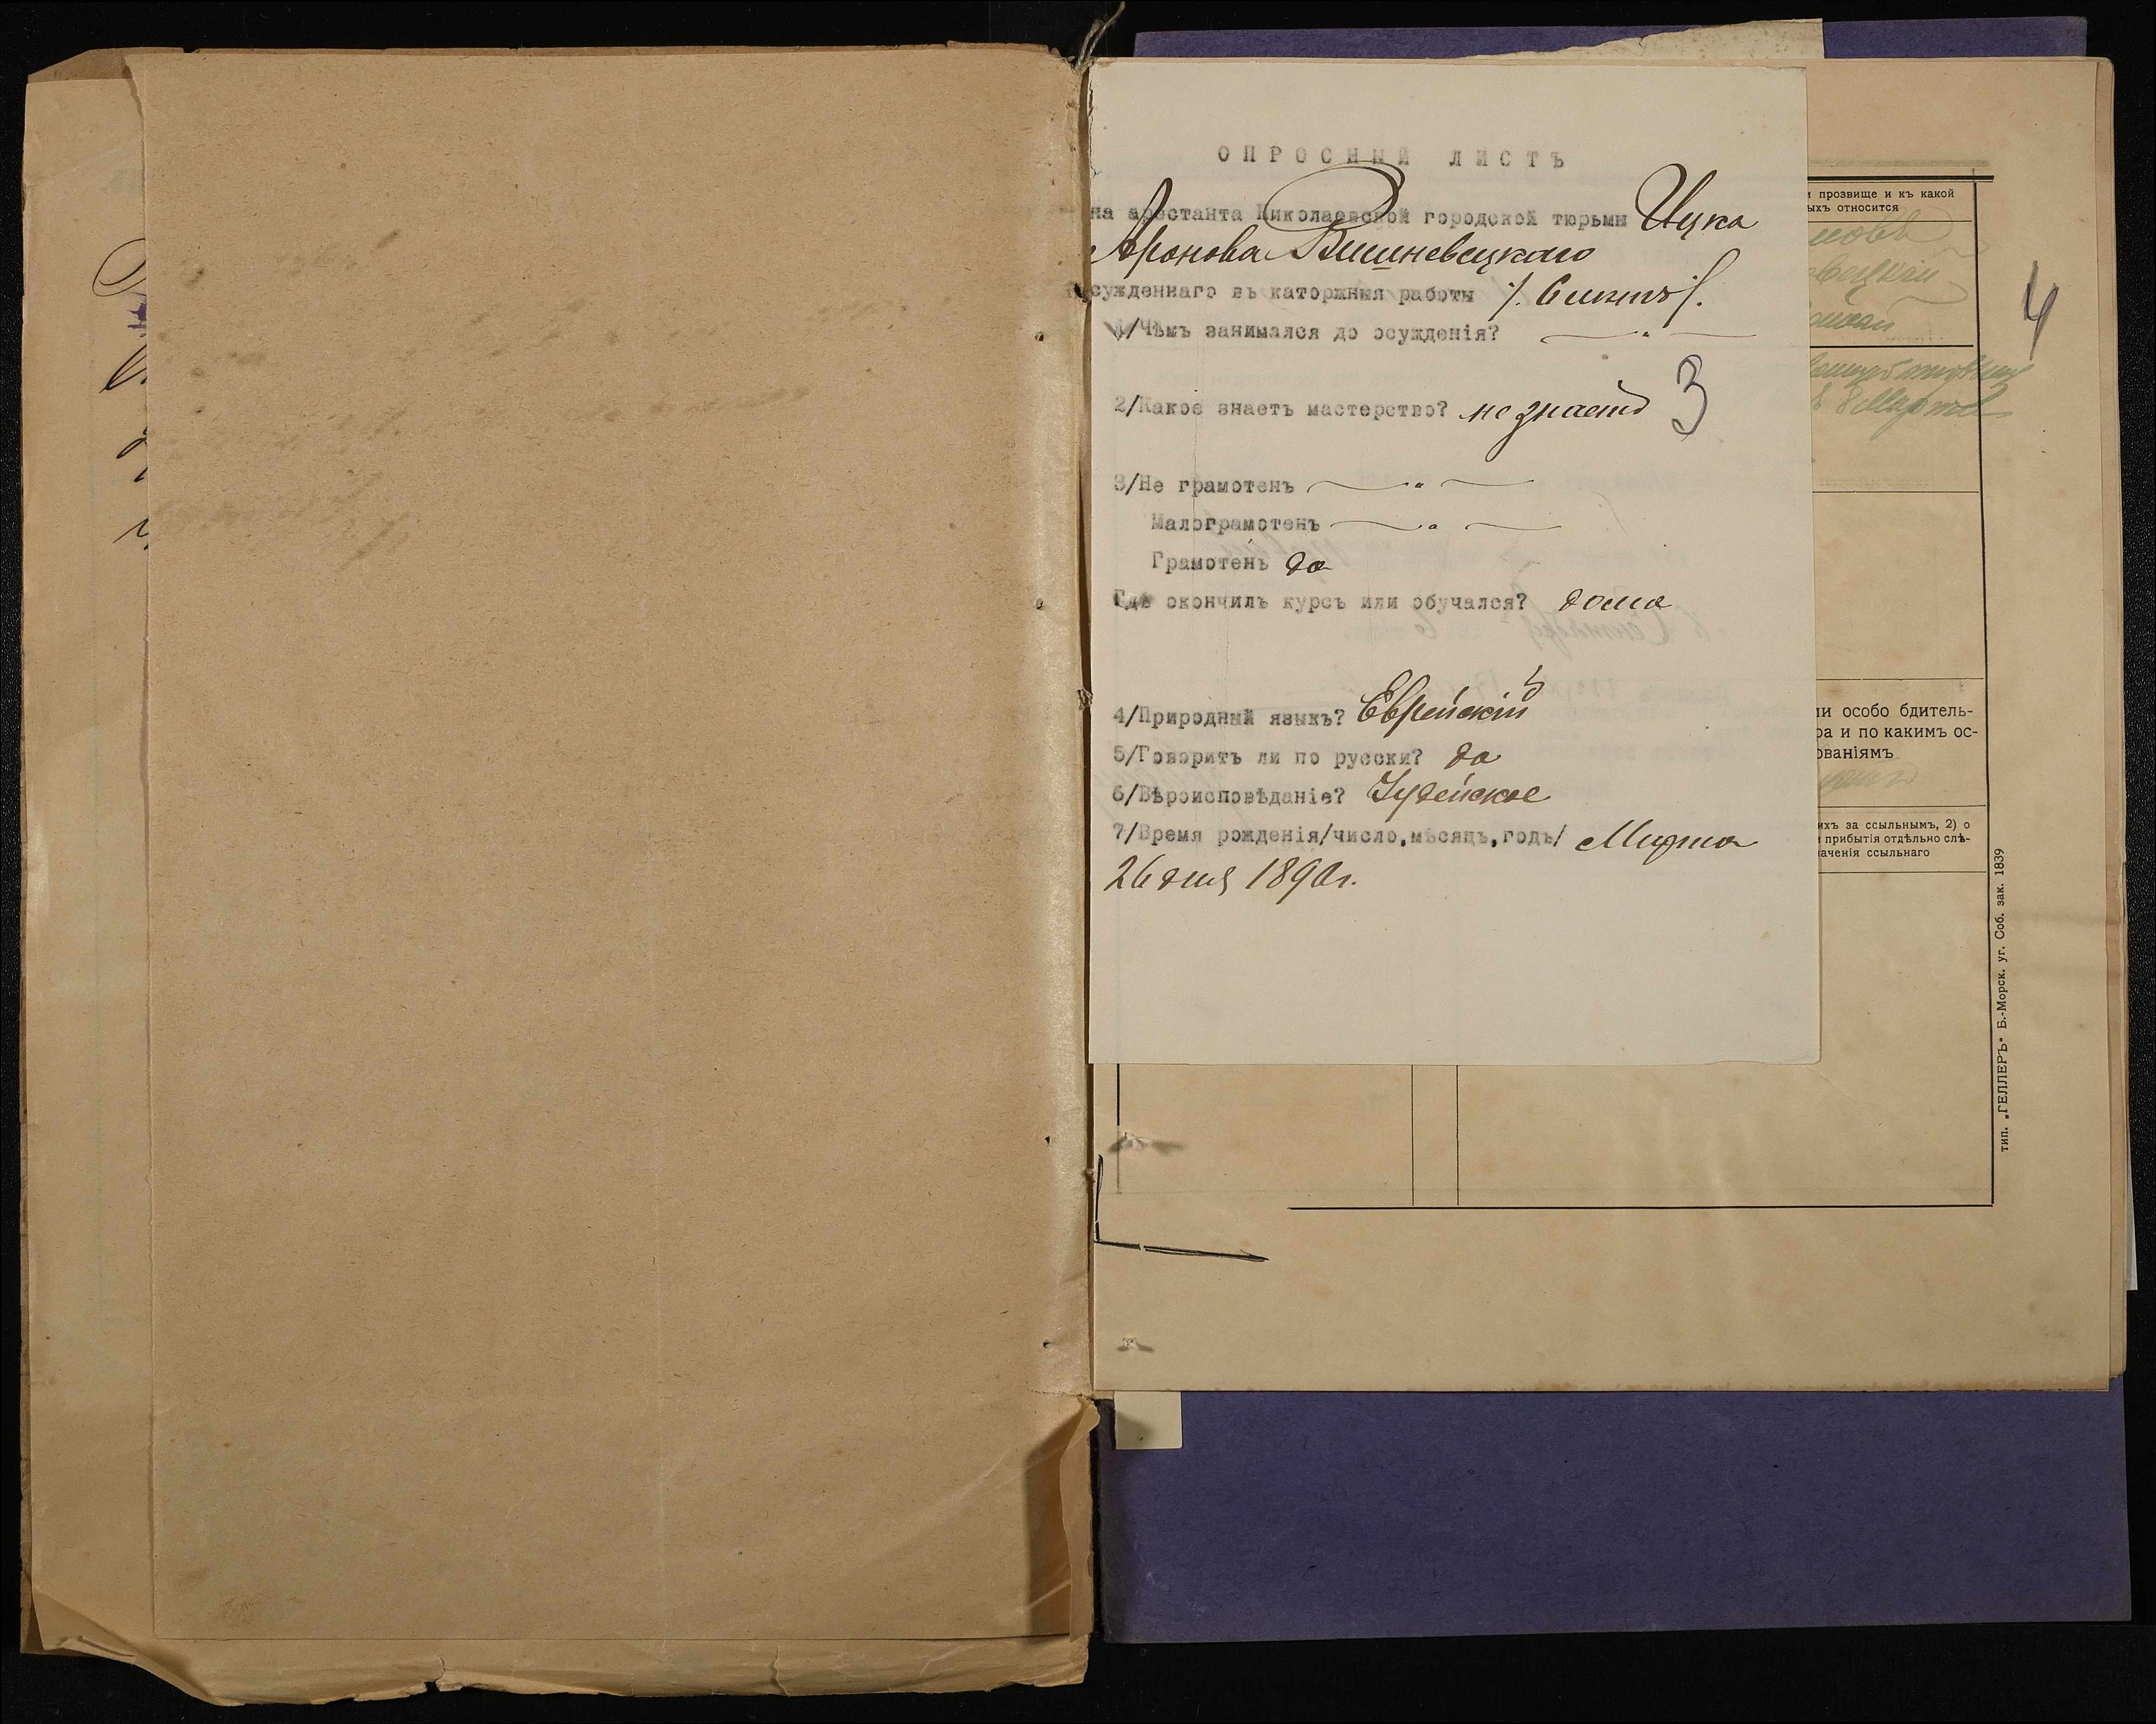 ОПРОСНЫЙ ЛИСТЪ
на арестанта Николаевской городской тюрьмы Ицка
Аронова Вишневецкаго
осужденнаго въ каторжныя работы /. 6 лѣтъ /.
1/Чѣмъ занимался до осужденія? — " —
2/Какое знаетъ мастерство? не знаетъ
3
3/Не грамотенъ — " —
Малограмотенъ — " —
Грамотенъ да
Гдѣ окончилъ курсъ или обучался? дома
4/Природный языкъ? Еврейскій
5/Говоритъ ли по русски? да
6/Вѣроисповѣданіе? Іудейское
7/Время рожденія/число,мѣсяцъ,годъ/ Марта
26 дня 1890 г.
и прозвище и къ какой
ыхъ относится
4
ли особо бдитель-
ра и по какимъ ос-
ованіямъ
ихъ за ссыльнымъ, 2) о
и прибытія отдѣльно слѣ-
наченія ссыльнаго
тип. „ГЕЛЛЕРЪ" Б.-Морск. уг. Соб. зак. 1839